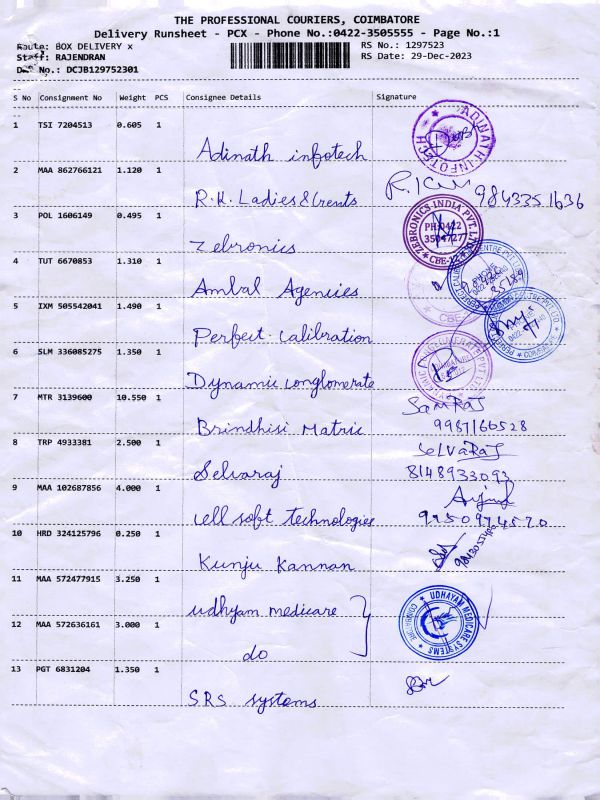 THE PROFESSIONAL COURIERS, COIMBATORE
Delivery Runsheet - PCX - Phone No.:0422-3505555 - Page No.:1
Route: BOX DELIVERY x
RS No.: 1297523
Staff: RAJENDRAN
RS Date: 29-Dec-2023
No.: DCJB129752301
S No Consignment No Weight PCS Consignee Details Signature
1 TSI 7204513 0.605 1
Adinath infotech
ADINATH INFOTECH
2 MAA 862766121 1.120 1
R.K. Ladies & Gents
9843351636
3 POL 1606149 0.495 1
Zebronics
ZEBRONICS INDIA PVT. LTD.
PH:0422
3504727
CBE-12
4 TUT 6670853 1.310 1
Ambal Agencies
5 IXM 505542041 1.490 1
Perfect calibration
6 SLM 336085275 1.350 1
Dynamic conglomerate
7 MTR 3139600 10.550 1
Brindhisi Matric
9987166528
8 TRP 4933381 2.500 1
Selvaraj
SelVaRaJ
8148933093
9 MAA 102687856 4.000 1
cell soft technologies
10 HRD 324125796 0.250 1
Kunju Kannan
11 MAA 572477915 3.250 1
udhyam medicare
UDHAYAM MEDICARE SYSTEMS
COIMBATORE
12 MAA 572636161 3.000 1
do
13 PGT 6831204 1.350 1
S.R.S systems